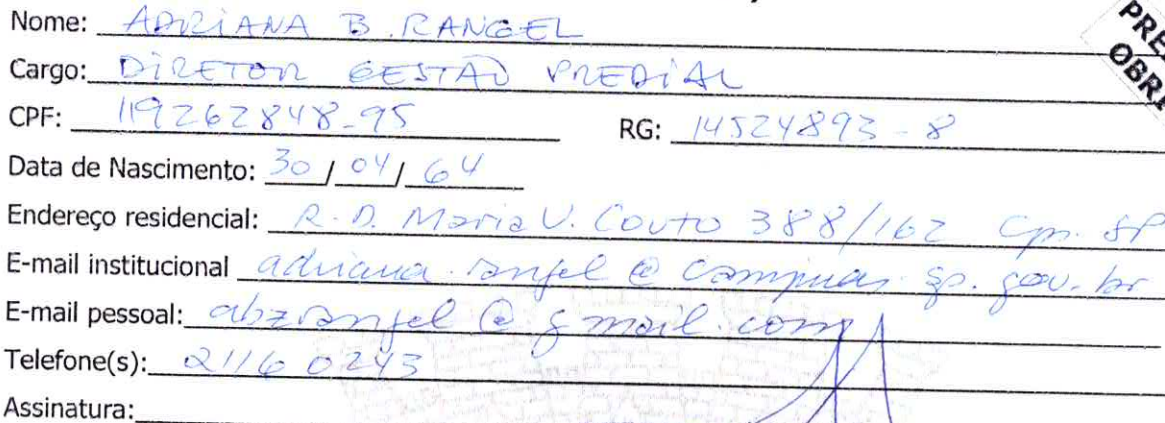 Nome: ADRIANA B. RANGEL
PRE
OBRI
Cargo: DIRETOR GESTÃO PREDIAL
CPF: 119262848-95 RG: 14524893-8
Data de Nascimento: 30/04/64
Endereço residencial: R. D. Maria U. Couto 388/162 Cps. SP
E-mail institucional adriana.rangel@campinas.sp.gov.br
E-mail pessoal: abzrangel@gmail.com
Telefone(s): 2116 0243
Assinatura: